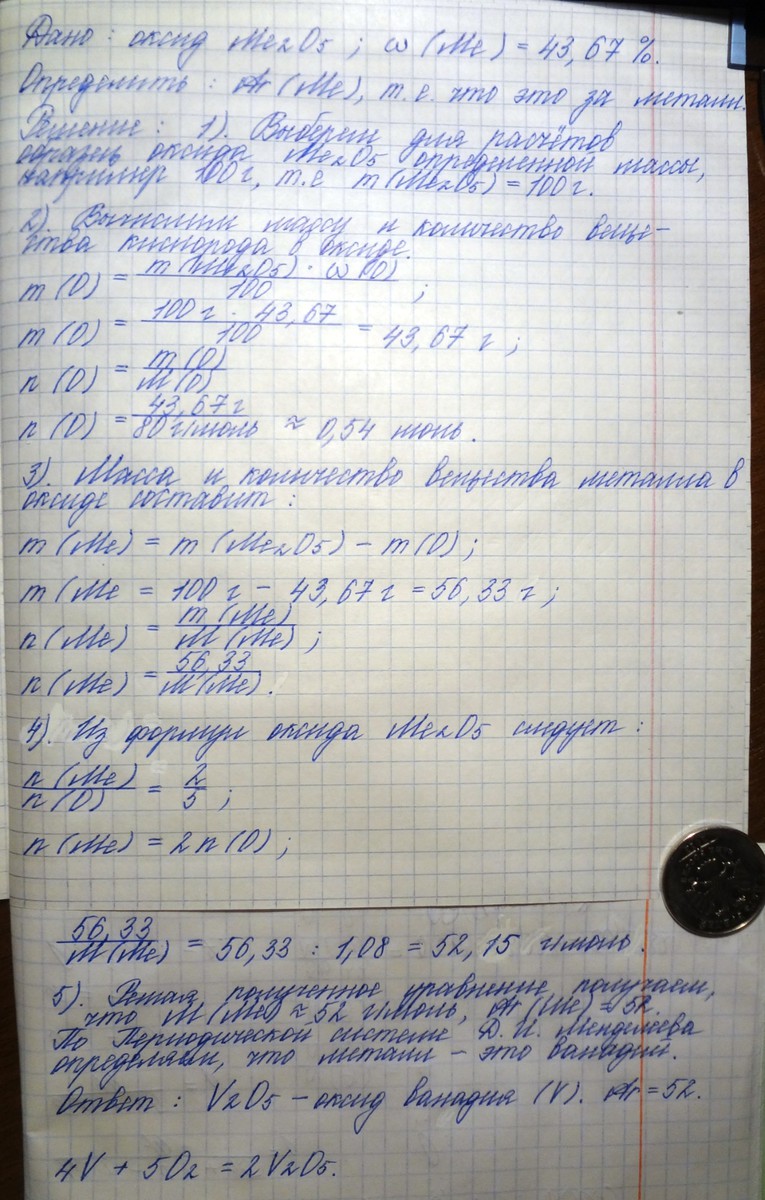 Дано : оксид Me₂O₅ ; ω (Me) = 43,67 %.
Определить : Ar (Me), т.е. что это за металл.
Решение : 1). Выберем для расчётов
образец оксида Me₂O₅ определенной массы,
например 100 г, т.е m (Me₂O₅) = 100 г.
2). Вычислим массу и количество веще-
ства кислорода в оксиде.
m (O) = m (Me₂O₅) · ω (O) / 100 ;
m (O) = 100 г · 43,67 / 100 = 43,67 г ;
n (O) = m (O) / M (O)
n (O) = 43,67 г / 80 г/моль ≈ 0,54 моль.
3). Масса и количество вещества металла в
оксиде составит :
m (Me) = m (Me₂O₅) – m (O) ;
m (Me = 100 г – 43,67 г = 56,33 г ;
n (Me) = m (Me) / M (Me) ;
n (Me) = 56,33 / M (Me) .
4). Из формул оксида Me₂O₅ следует :
n (Me) / n (O) = 2 / 5 ;
n (Me) = 2 n (O) ;
56,33 / M (Me) = 56,33 : 1,08 = 52,15 г/моль.
5). Решая полученное уравнение получаем,
что M (Me) ≈ 52 г/моль, Ar (Me) ≈ 52.
По Периодической системе Д. И. Менделеева
определяем, что металл – это ванадий.
Ответ : V₂O₅ – оксид ванадия (V). Ar = 52.
4V + 5O₂ = 2V₂O₅.